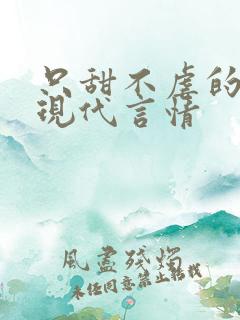 只甜不虐的
现代言情
風盡殘燭
未经同意禁止转载